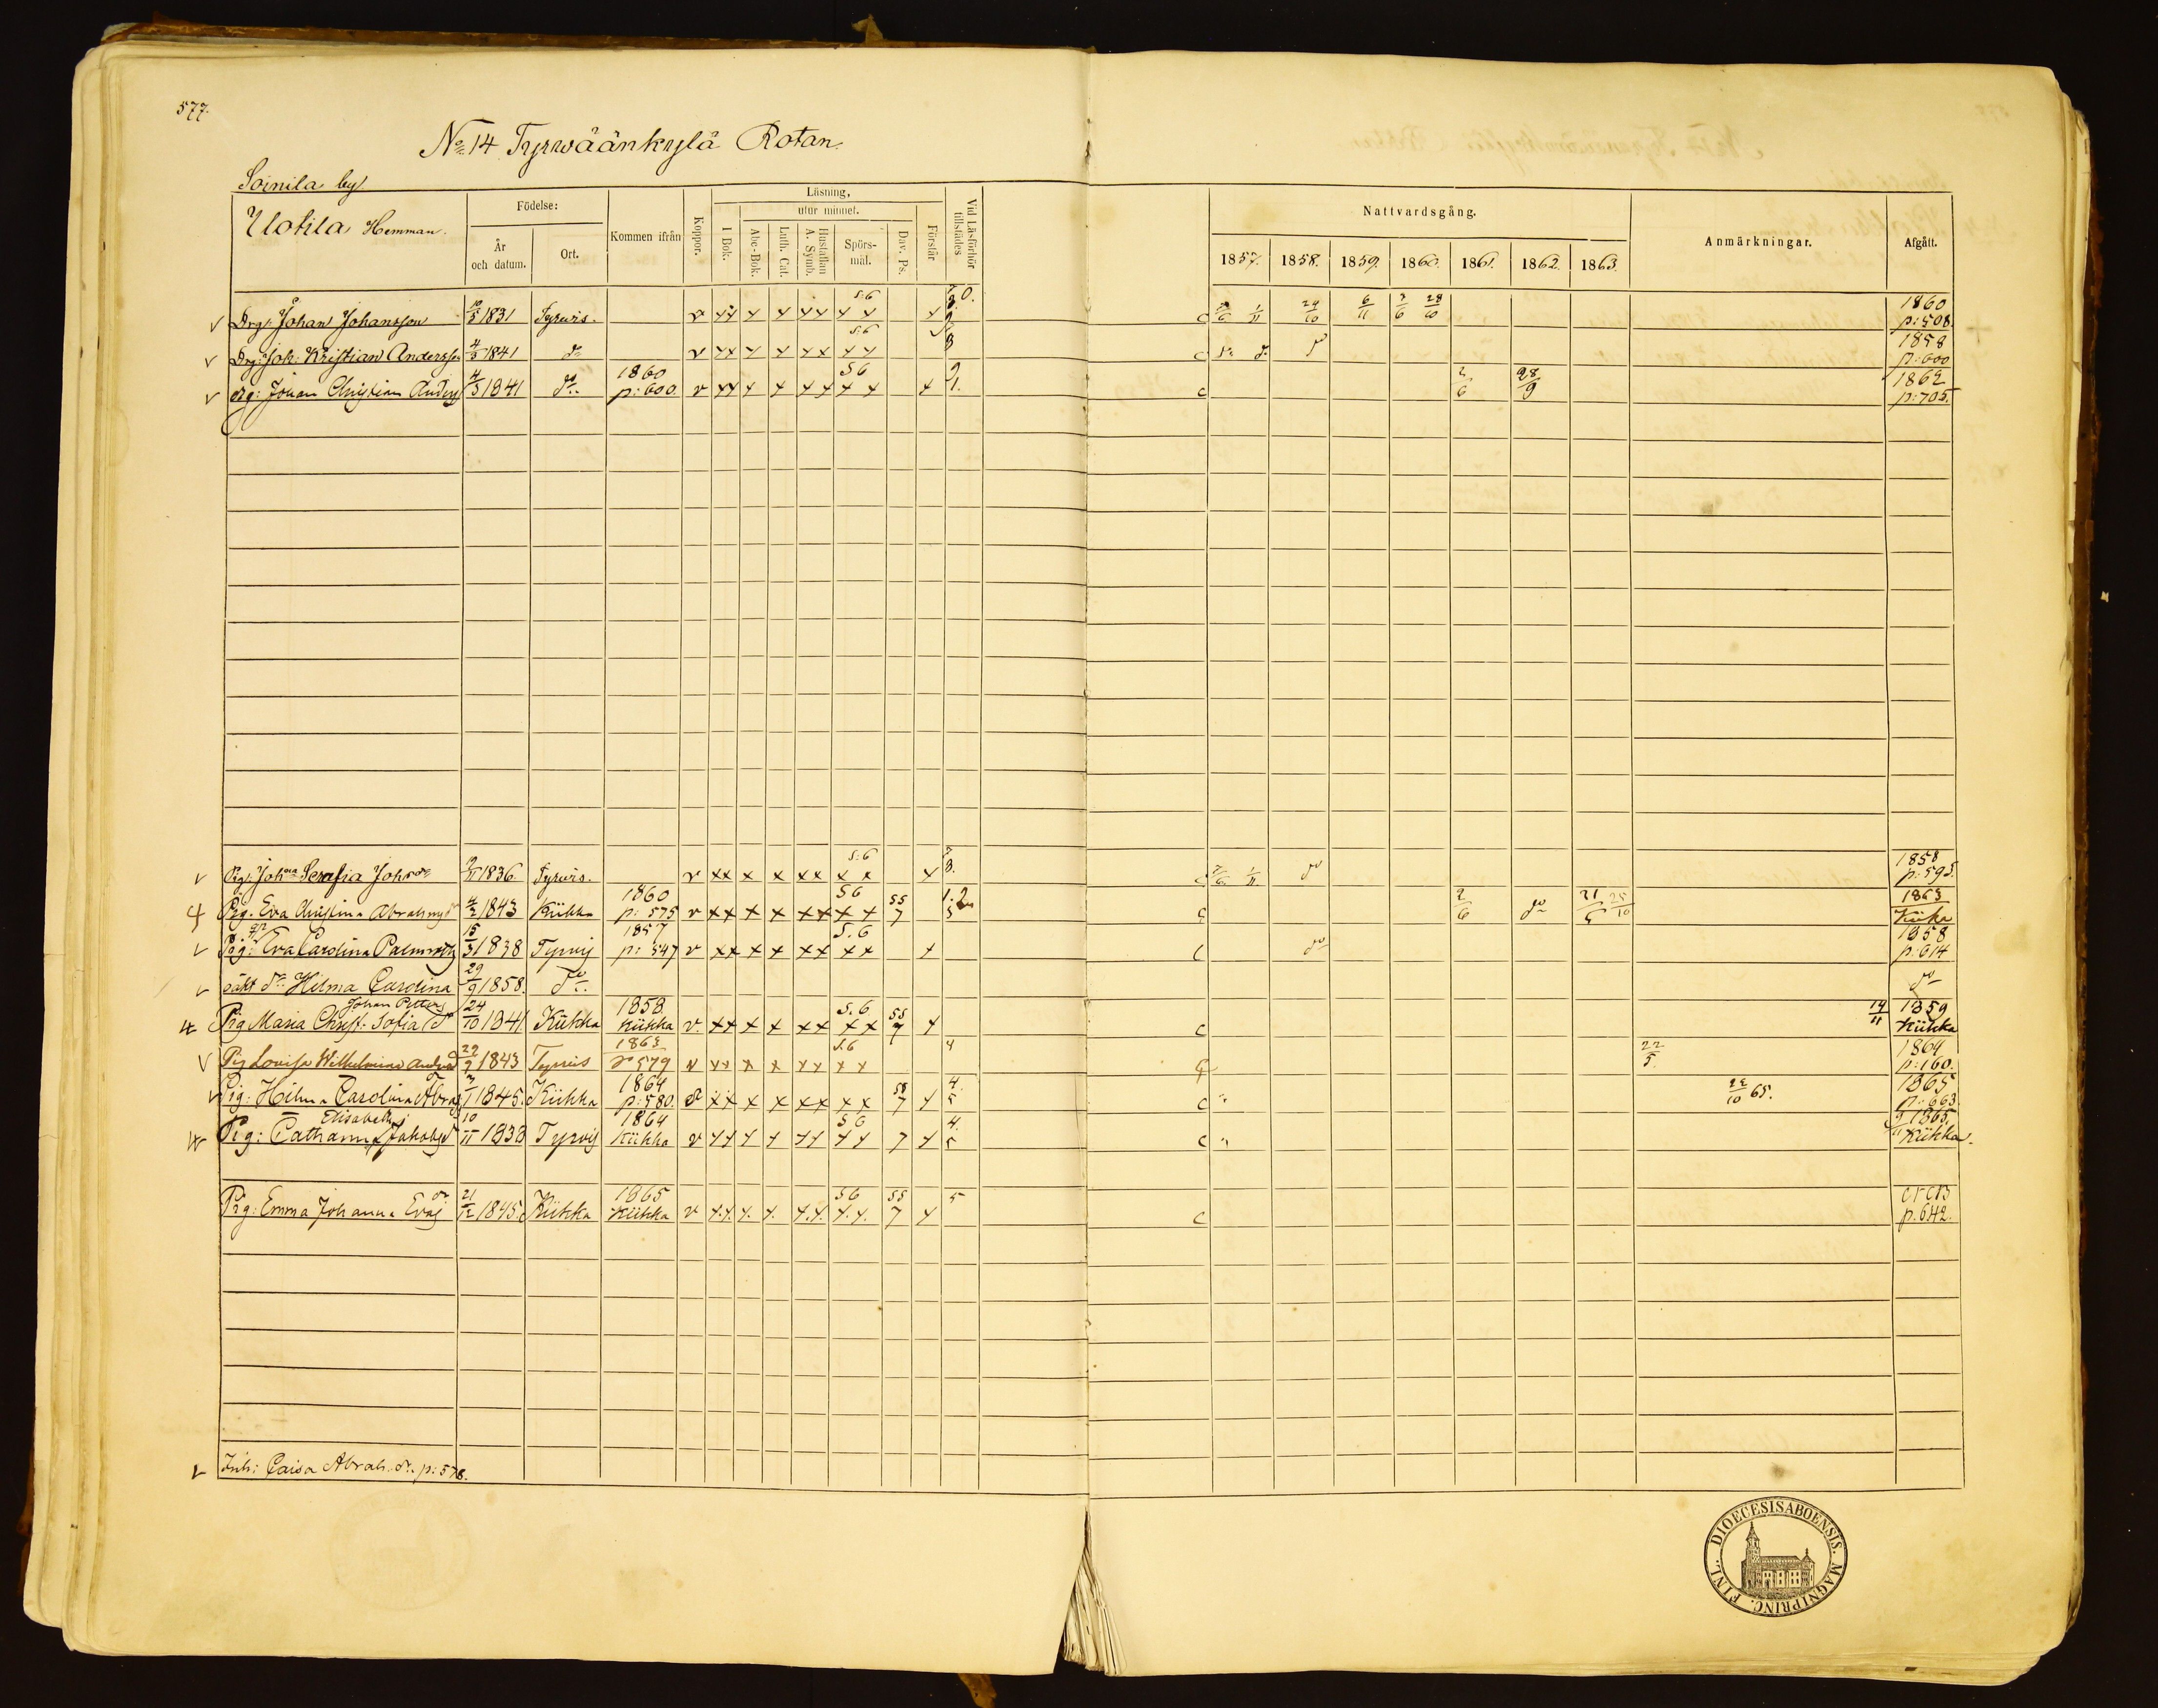 577.
No 14 Tyrwäänkylä Rotan.
Soinila by
Ulotila Hemman.
Födelse:
År och datum.
Ort.
Kommen ifrån
Koppor.
Läsning,
utur minnet.
I Bok.
Abc-Bok.
Luth. Cat.
Hustaflan A. Symb.
Spörsmål.
Dav. Ps.
Förstår
Vid Läsförhör tillstädes
Nattvardsgång.
1857. 1858. 1859. 1860. 1861. 1862. 1863.
Anmärkningar.
Afgått.
Drg: Johan Johansson 10/5 1831 Tyrwis. v S:6 c 24/10 6/11 28/10 1860 p: 508
Drg: Joh: Kristian Andersson 4/5 1841 do v S:6 8 c 1858 p: 600
Drg: Johan Christian 4/5 1841 do 1860 p: 600. v S6 c 2/6 28/9 1862 p: 705.
Pig: Johna Serafia Johsdr 1836 Tyrwis. v S:6 8. 1/11 do 1858 p: 595.
Pig: Eva Christina Abrahmsdr 4/2 1843 Kiikka 1860 p: 575 v S6 55 7 2/6 do 1863 Kiika
Pig: Eva Carolina Palmroth 15/3 1838 Tyrvis 1857 p: 547 v S.6 do 1858 p: 614
oäkt dr Hilma Carolina 29/9 1858. do do
Pig Maria Christ. Sofia Johan Petters dr 24/10 1841. Kiikka 1858. Kiikka v. S.6 55 7 c 14/11 1859 Kiikka
Pig Lovisa Wilhelmina Andrsd 29/9 1843 Tyrvis 1863 p 579 v S.6 4 22/5. 1864 p: 160.
Pig: Hilma Carolina Abrasdr 1845. Kiikka 1864 p: 580. 7 4. 5 c 65. 1865 p: 663
Pig: Catharina Elisabeth Jakobsd 10/11 1838 Tyrvis 1864 Kiikka v S6 7 4. 5 c 1865. Kiikka.
Pig: Emma Johanna Evasdr 21/12 1845. Kiikka 1865 Kiikka v S6 55 7 5 c p. 642.
Inh: Caisa Abrah. dr. p: 578.
DIOECESIS ABOENSIS. MAGNI PRINC. FINL.